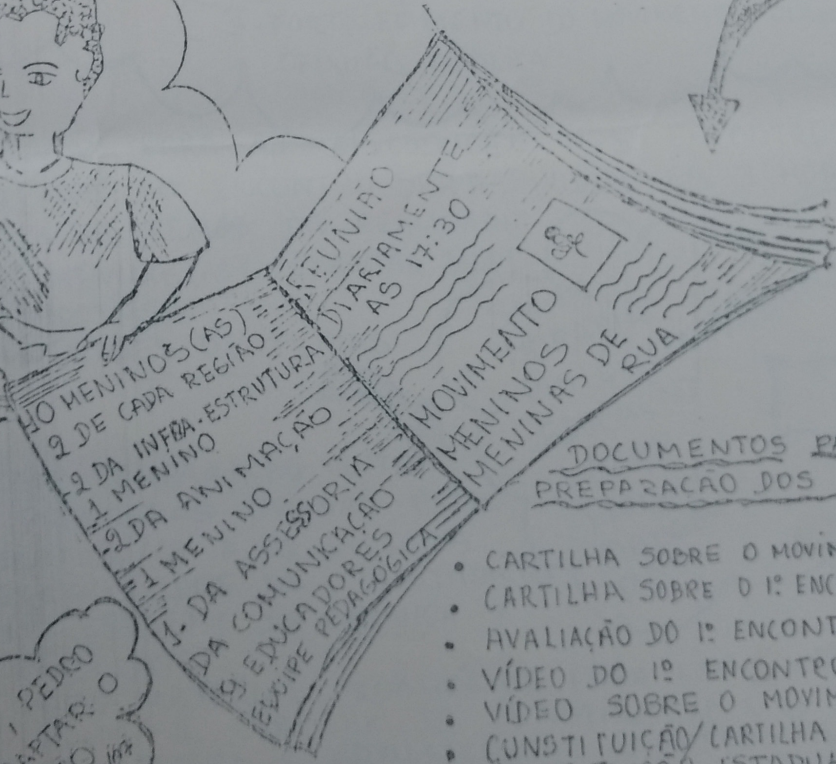 10 MENINOS(AS)
2 DE CADA REGIÃO
2 DA INFRA-ESTRUTURA
1 MENINO
2 DA ANIMAÇÃO
1 MENINO
1 - DA ASSESSORIA
DA COMUNICAÇÃO
9 EDUCADORES
EQUIPE PEDAGÓGICA
REUNIÃO
DIARIAMENTE
AS 17:30
MOVIMENTO
MENINOS
MENINAS DE
RUA
DOCUMENTOS
PREPARAÇÃO DOS
• CARTILHA SOBRE O
• CARTILHA SOBRE O 1º
• AVALIAÇÃO DO 1º
• VÍDEO DO 1º ENCONTRO
• VÍDEO SOBRE O
• CONSTITUIÇÃO/CARTILHA
PEDRO
O